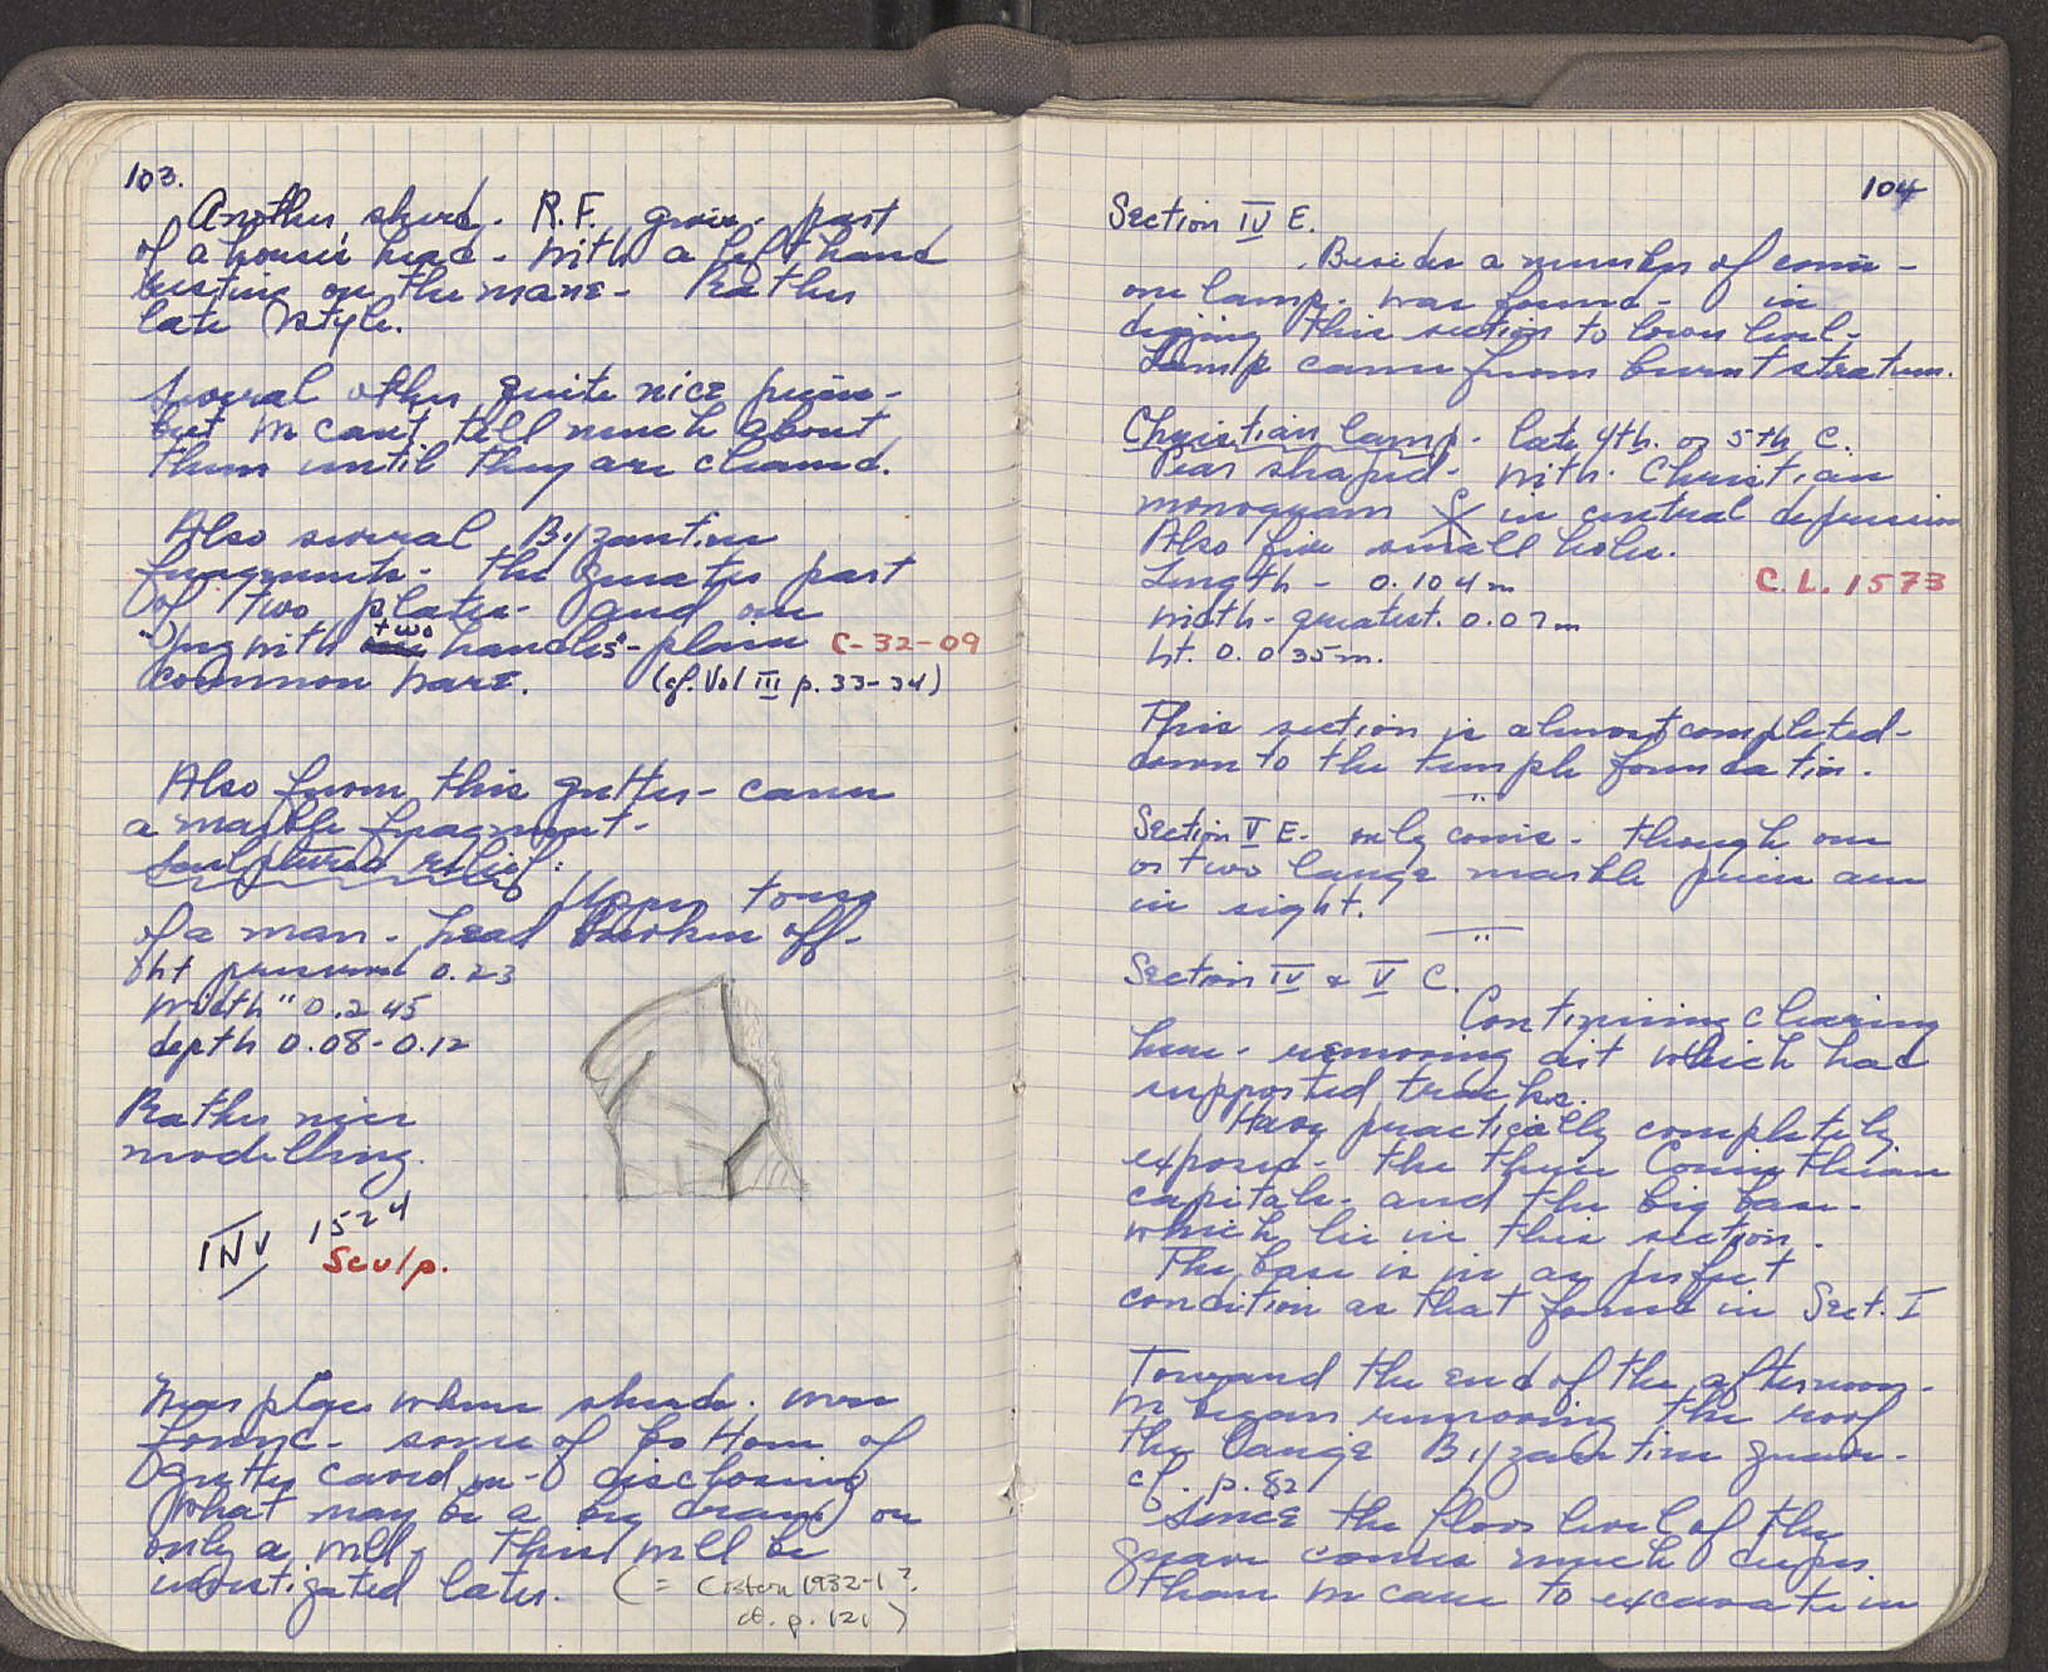 103.
Another sherd. R.F. gives part
of a horse's head - with a left hand
resting on the mane - Rather
late style.
Several other quite nice pieces -
but we can't tell much about
them until they are cleaned.
Also several Byzantine
fragments - the greater part
of two plates - and one
"Jug with two handles" - plain C-32-09
common ware. (cf. Vol III p. 33-34)
Also from this gutter - came
a marble fragment -
Sculptured relief:
Upper torso
of a man - head broken off -
ht preserved 0.23
width " 0.245
depth 0.08-0.12
Rather nice
modelling.
INV 1524
Sculp.
Near place where sherds were
found - some of bottom of
gutter caved in - disclosing
what may be a big drain or
only a well. This will be
investigated later. (= Cistern 1932-1?
cf. p. 121)
104
Section IV E.
Besides a number of coins -
one lamp was found - in
digging this section to lower level -
Lamp came from burnt stratum.
Christian lamp - late 4th. or 5th C.
Pear shaped - with Christian
monogram in central depression
Also five small holes.
Length - 0.104 m C.L. 1573
width - greatest. 0.07m
ht. 0.035m.
This section is almost completed -
down to the temple foundation.
Section V E. only coins - though one
or two large marble pieces are
in sight.
Section IV & V C.
Continuing clearing
here - removing dirt which had
supported tracks.
Have practically completely
exposed - the three Corinthian
capitals - and the big base -
which lie in this section.
The base is in as perfect
condition as that found in Sect. I
Toward the end of the afternoon -
we began removing the roof
the large Byzantine grave -
cf. p. 82
Since the floor level of the
grave comes much deeper
than we care to excavate in